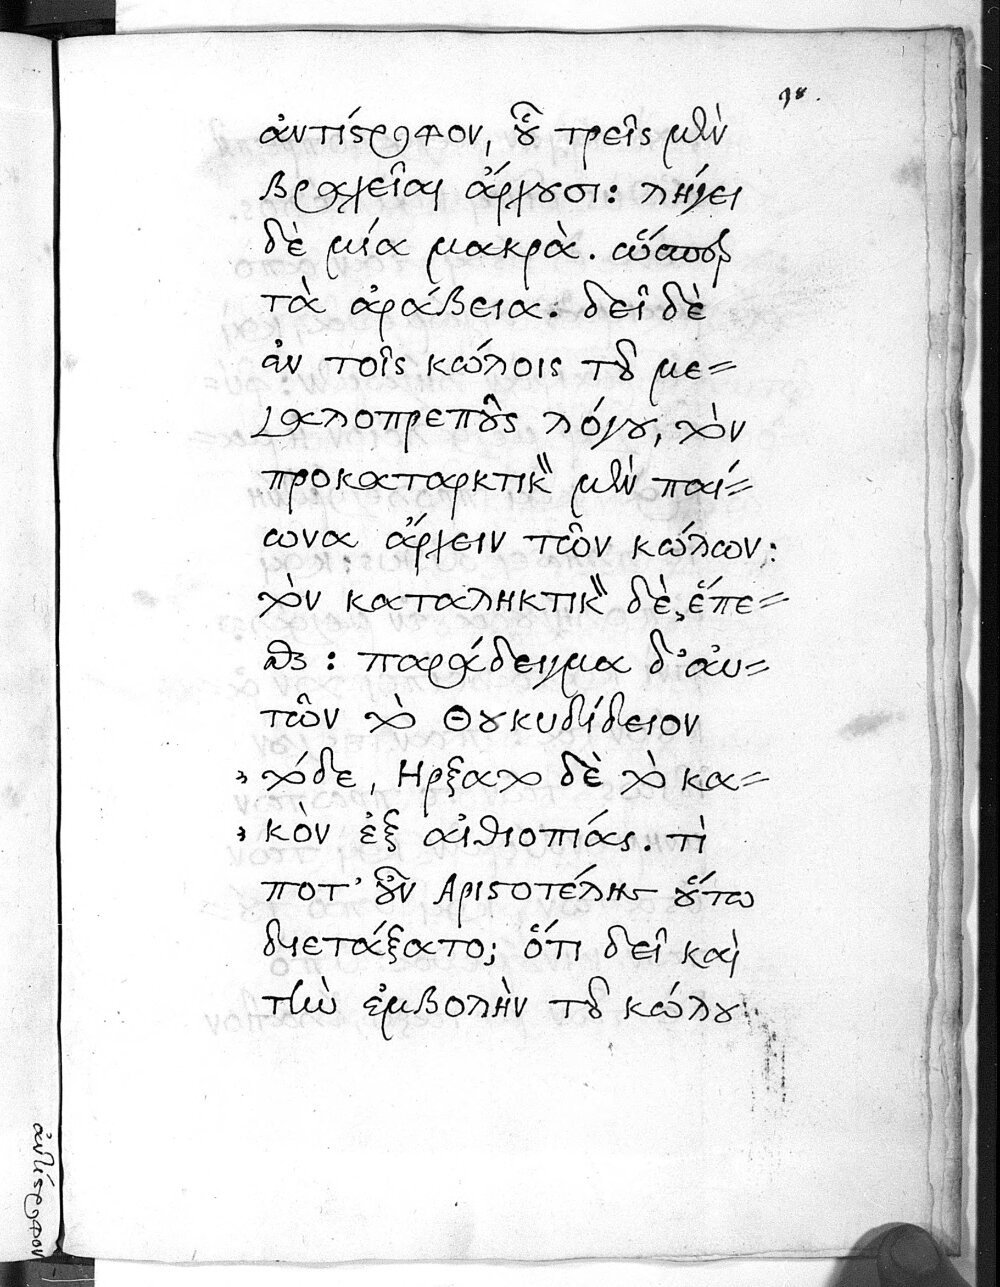 ἀντίστροφον, οὗ τρεῖς μὲν
βραχεῖαι ἄρχουσι: λήγει
δὲ μία μακρὰ. οἷόν
τὰ ἀράβεια: δεῖ δὲ
ἐν τοῖς κώλοις τοῦ με=
γαλοπρεποῦς λόγου, τὸν
προκαταρκτικὸν μὲν παί=
ωνα ἄρχειν τῶν κώλων:
τὸν καταληκτικὸν δὲ, ἕπε=
σθαι: παράδειγμα δ' αὐ=
τῶν τὸ Θουκυδίδειον
τόδε, Ηρξατο δὲ τὸ κα=
κὸν ἐξ αἰθιοπίας. τὶ
ποτ' οὖν Αριστοτέλης οὕτω
διετάξατο; ὅτι δεῖ καὶ
τὴν ἐμβολὴν τοῦ κώλου
ἀντίστροφον